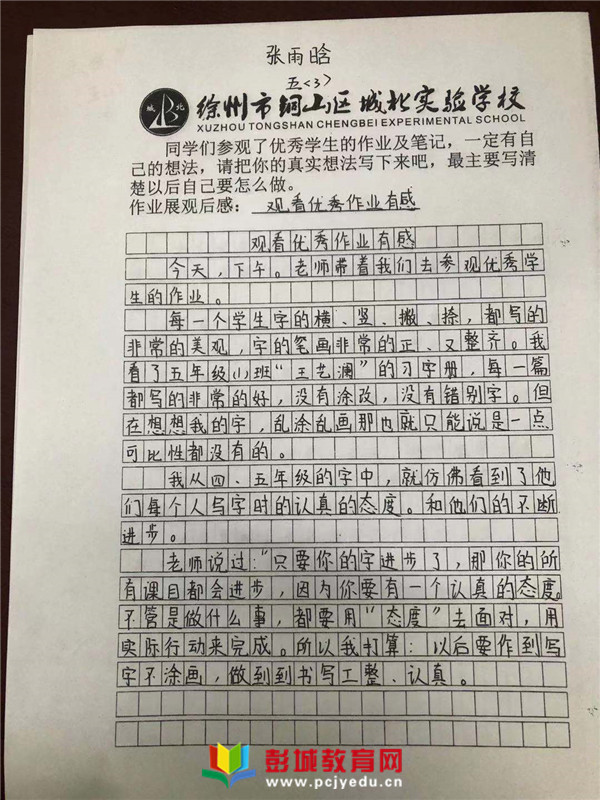 张雨晗
五<3>
城 北
徐州市铜山区城北实验学校
XUZHOU TONGSHAN CHENGBEI EXPERIMENTAL SCHOOL
同学们参观了优秀学生的作业及笔记，一定有自
己的想法，请把你的真实想法写下来吧，最主要写清
楚以后自己要怎么做。
作业展观后感： 观看优秀作业有感
观看优秀作业有感
今天，下午。老师带着我们去参观优秀学
生的作业。
每一个学生字的横、竖、撇、捺，都写的
非常的美观，字的笔画非常的正、又整齐。我
看了五年级(1)班“王艺澜”的习字册，每一篇
都写的非常的好，没有涂改，没有错别字。但
在想想我的字，乱涂乱画那也就只能说是一点
可比性都没有的。
我从四、五年级的字中，就仿佛看到了他
们每个人写字时的认真的态度。和他们的不断
进步。
老师说过：“只要你的字进步了，那你的所
有课目都会进步，因为你要有一个认真的态度。
不管是做什么事，都要用“态度”去面对，用
实际行动来完成。所以我打算：以后要作到写
字不涂画，做到到书写工整、认真。
彭城教育网
www.pcjyedu.cn